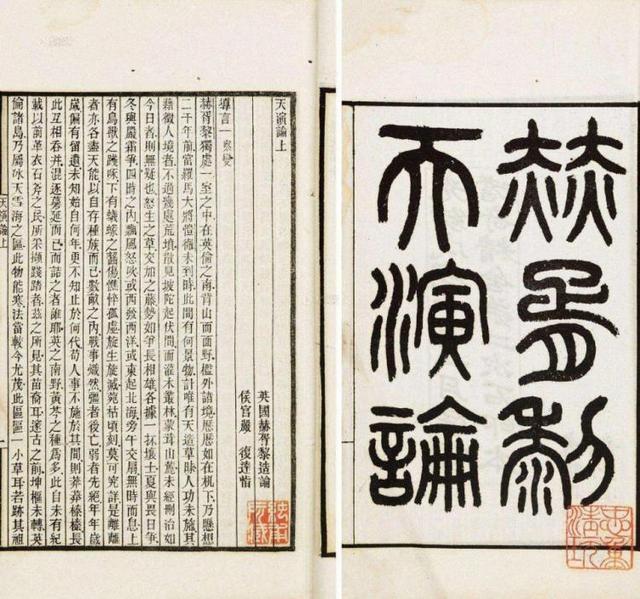 赫胥黎
天演論
天演論上
英國赫胥黎造論
侯官嚴 復達恉
導言一 察變
赫胥黎獨處一室之中在英倫之南背山而面野檻外諸境歷歷如在机下乃懸想
二千年前當羅馬大將愷徹未到時此間有何景物計唯有天造草昧人功未施其
藉徵人境者不過幾處荒墳散見坡陀起伏間而灌木叢林蒙茸山麓未經刪治如
今日者則無疑也怒生之草交加之藤勢如爭長相雄各據一抔壤土夏與畏日爭
冬與嚴霜爭四時之內飄風怒吹或西發西洋或東起北海旁午交扇無時而息上
有鳥獸之踐啄下有蟻蝝之齧傷憔悴孤虛旋生旋滅菀枯頃刻莫可究詳是離離
者亦各盡天能以自存種族而已數畝之內戰事熾然彊者後亡弱者先絕年年歲
歲偏有留遺未知始自何年更不知止於何代苟人事不施於其間則莽莽榛榛長
此互相吞并混逐蔓延而已而詰之者誰耶英之南野黃芩之種爲多此自未有紀
載以前革衣石斧之民所采擷踐踏者茲之所見其苗裔耳邃古之前坤樞未轉英
倫諸島乃屬冰天雪海之區此物能寒法當較今尤茂此區區一小草耳若跡其祖
天演論上